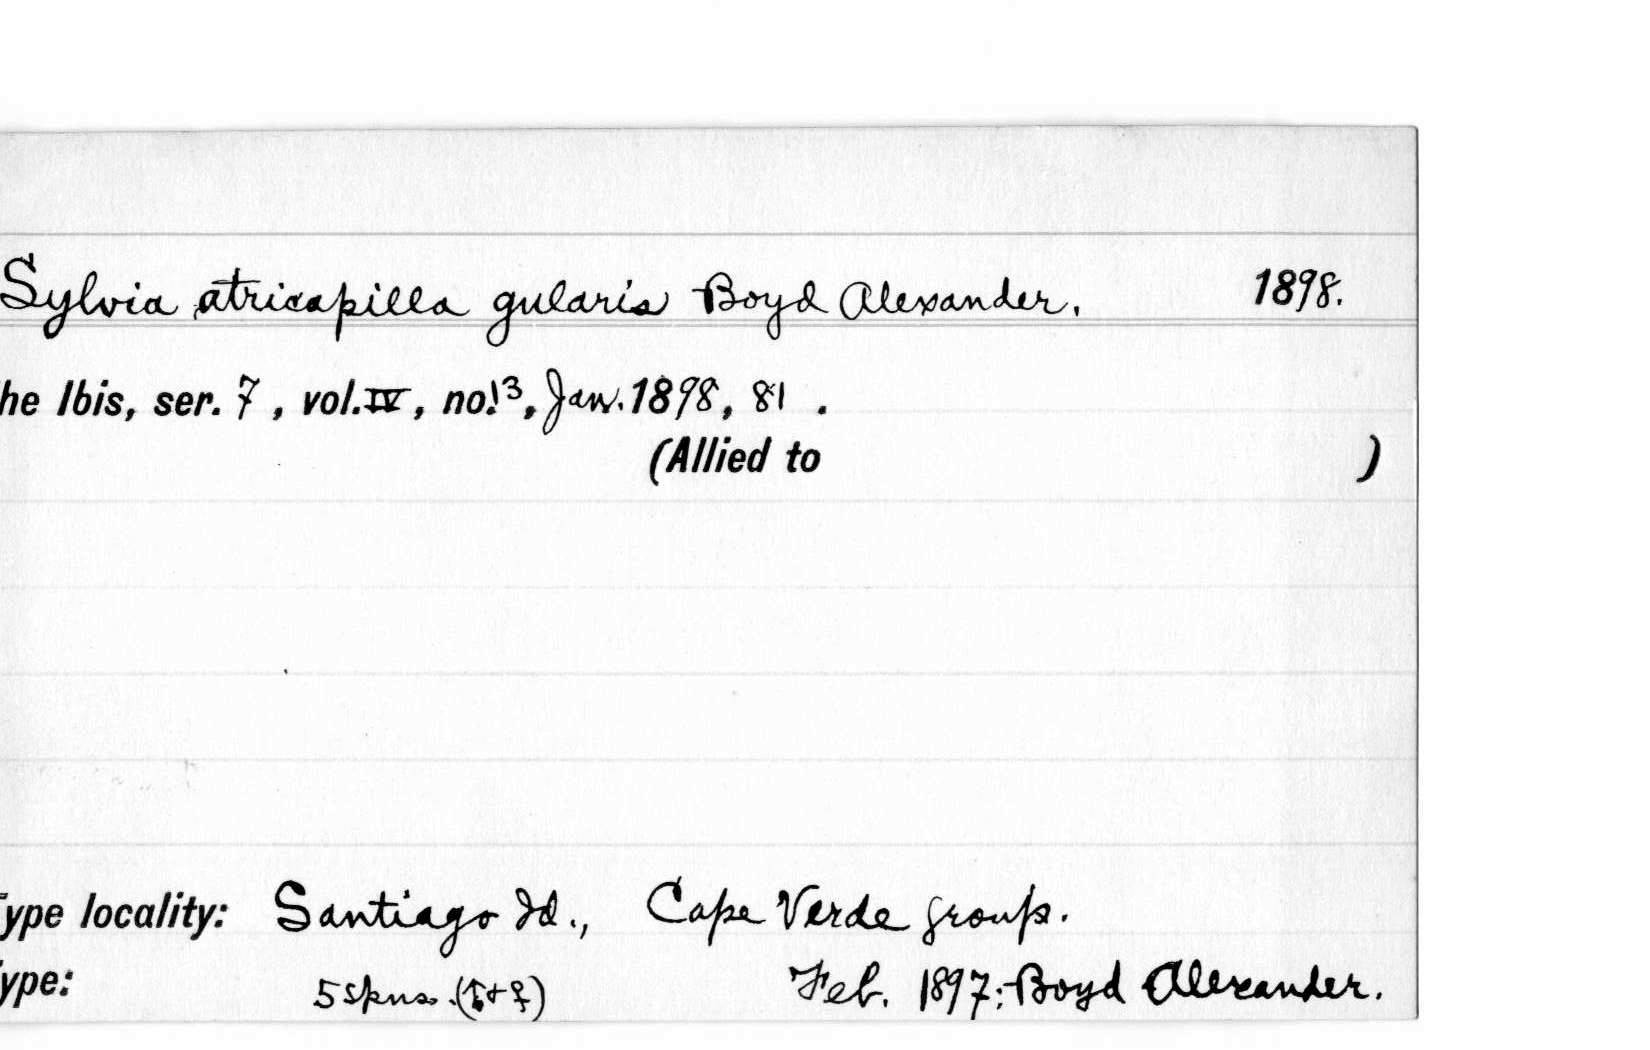 Sylvia atricapilla gularis Boyd Alexander. 1898.
he Ibis, ser. 7, vol. IV, no. 13, Jan. 1898, 81.
(Allied to )
Type locality: Santiago Id., Cape Verde group.
ype: 5 spns. (♂+♀) Feb. 1897; Boyd Alexander.